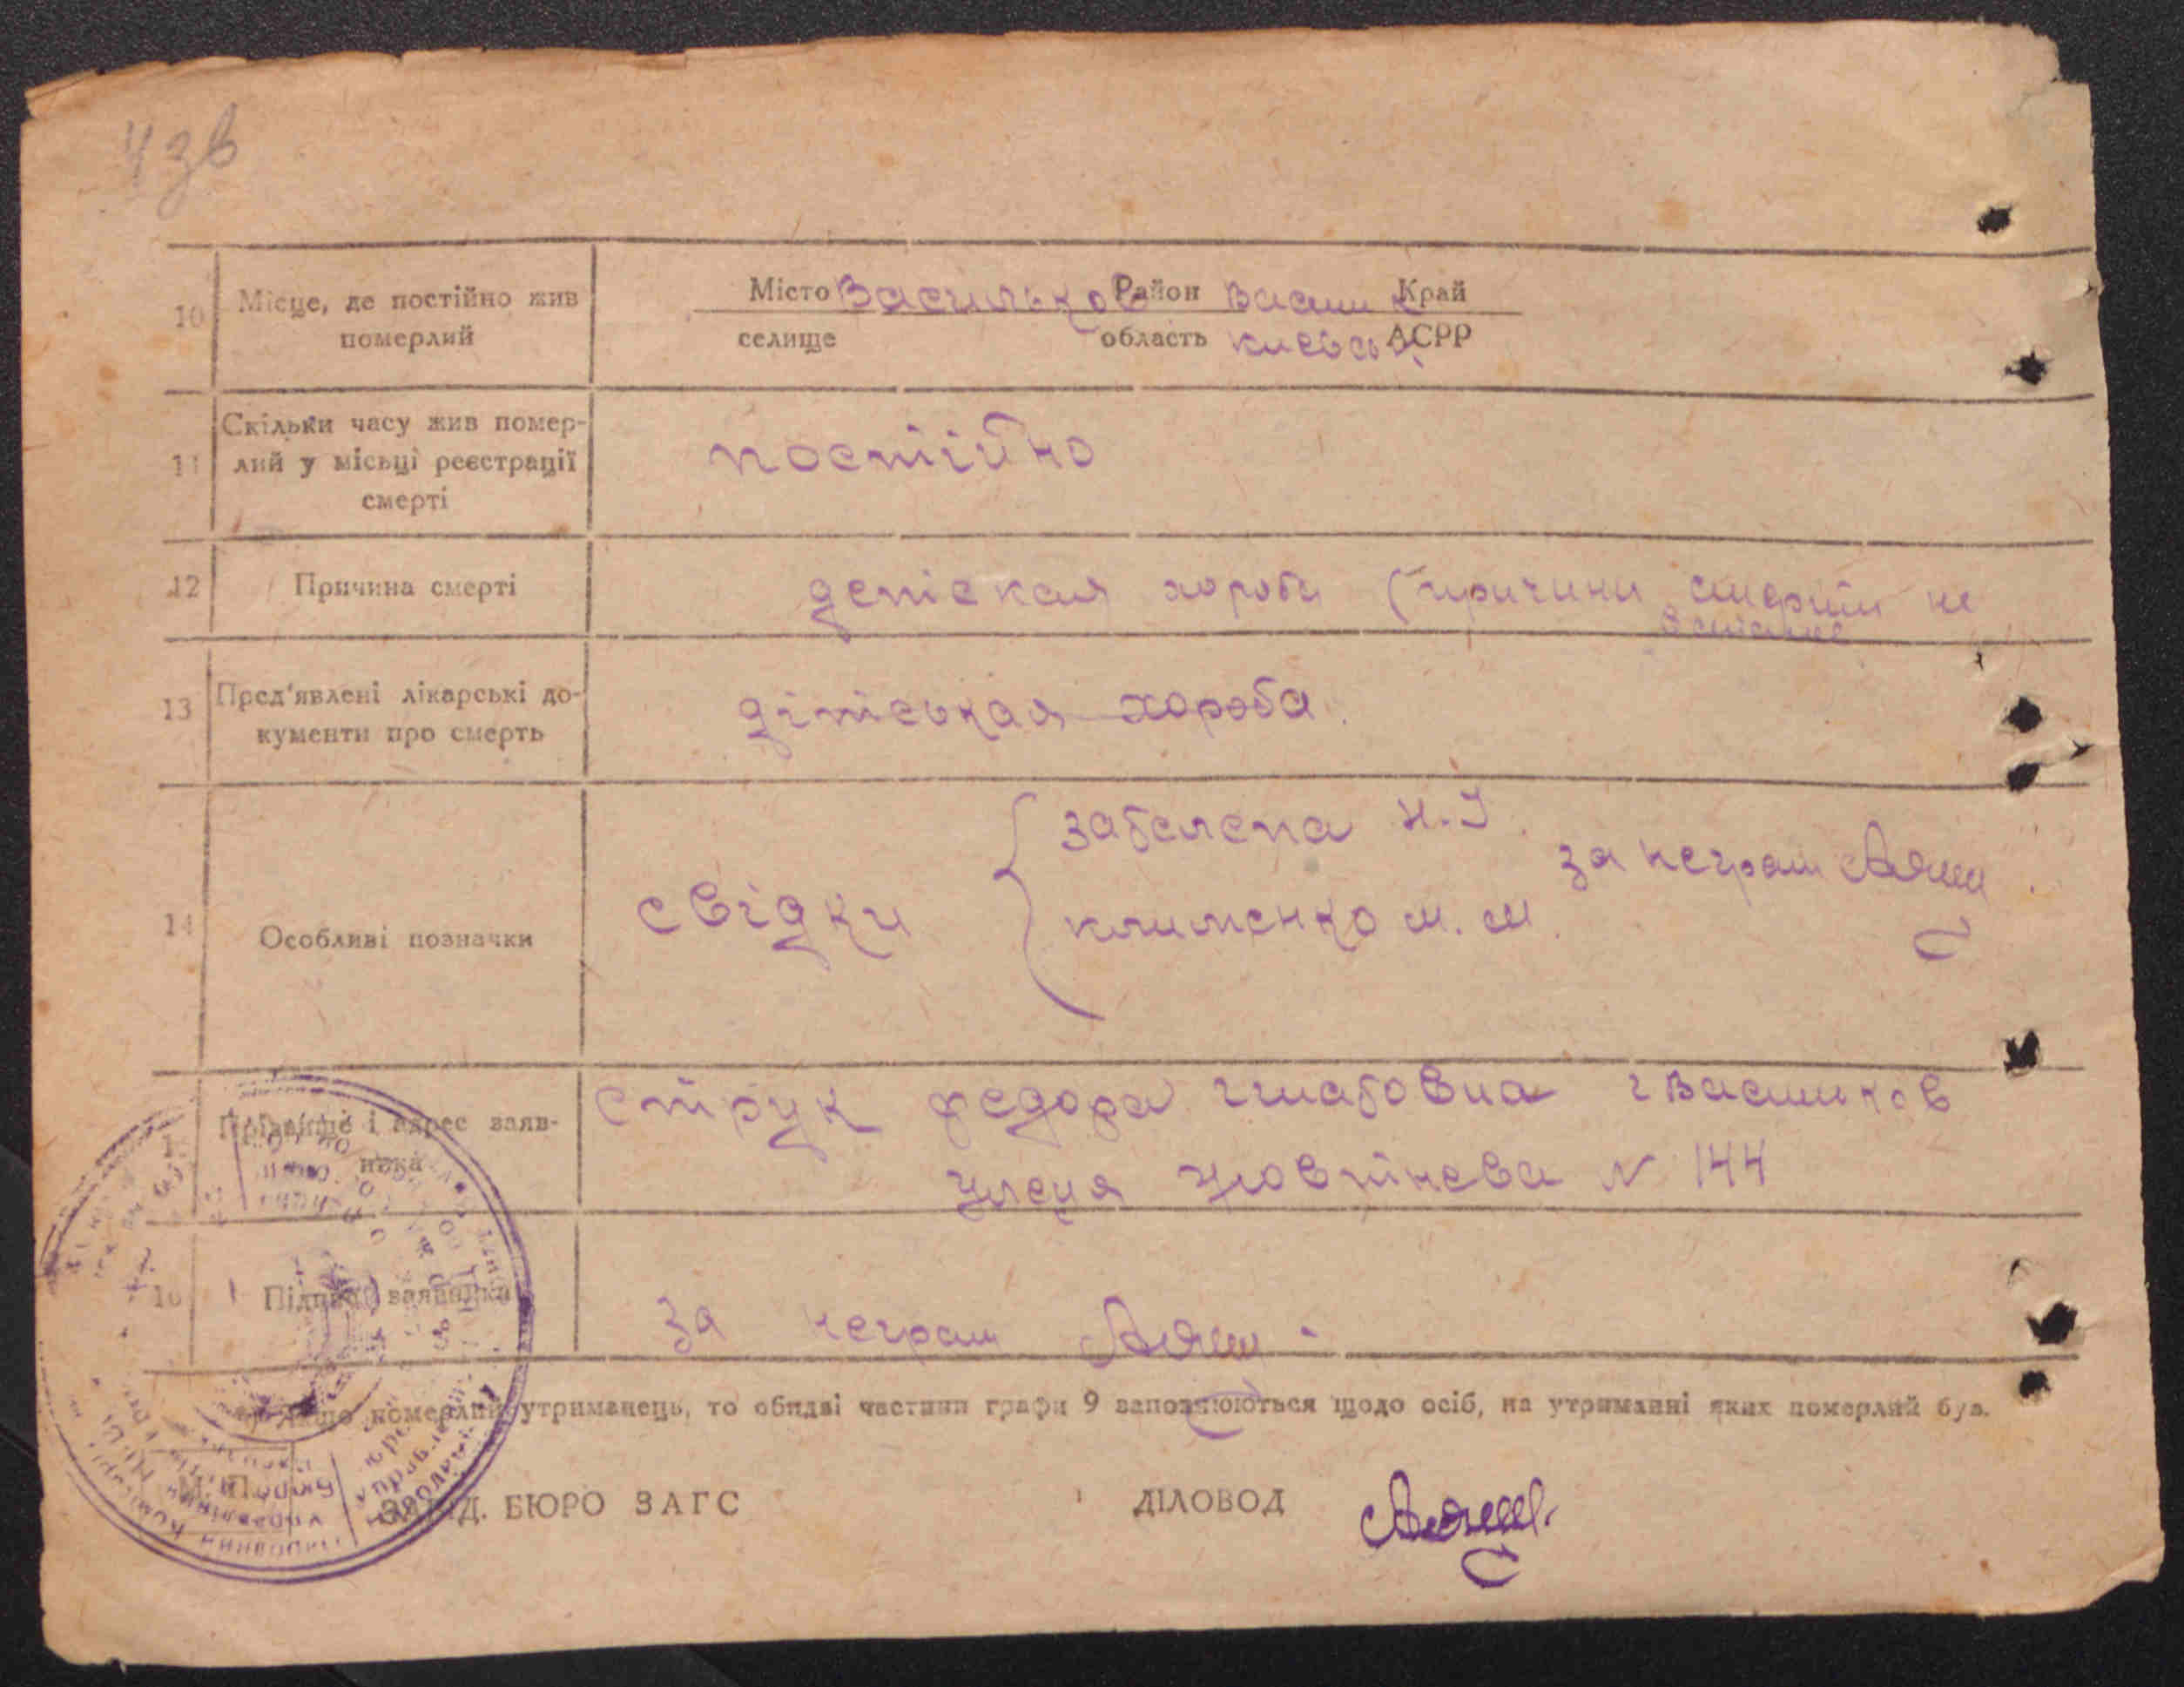 4 зв
10 Місце, де постійно жив померлий
Місто Васильков Район Васильк Край
селище область киевск АСРР
11 Скільки часу жив померлий у місьці реєстрації смерті
постійно
12 Причина смерті
детіская хороба (причини смерти не
13 Пред'явлені лікарські документи про смерть
дітіськая хороба.
14 Особливі позначки
свідки
H.I.
клименко м. м.
за неграм
Прізвище і адрес заявника
струк федора г Васильков
улеця Жовтнева № 144
16 Підпис заявника
за неграм
Якщо померлий утриманець, то обидві частини графи 9 заповнюються щодо осіб, на утриманні яких померлий був.
М. П.
ЗАВІД. БЮРО ЗАГС ДІЛОВОД